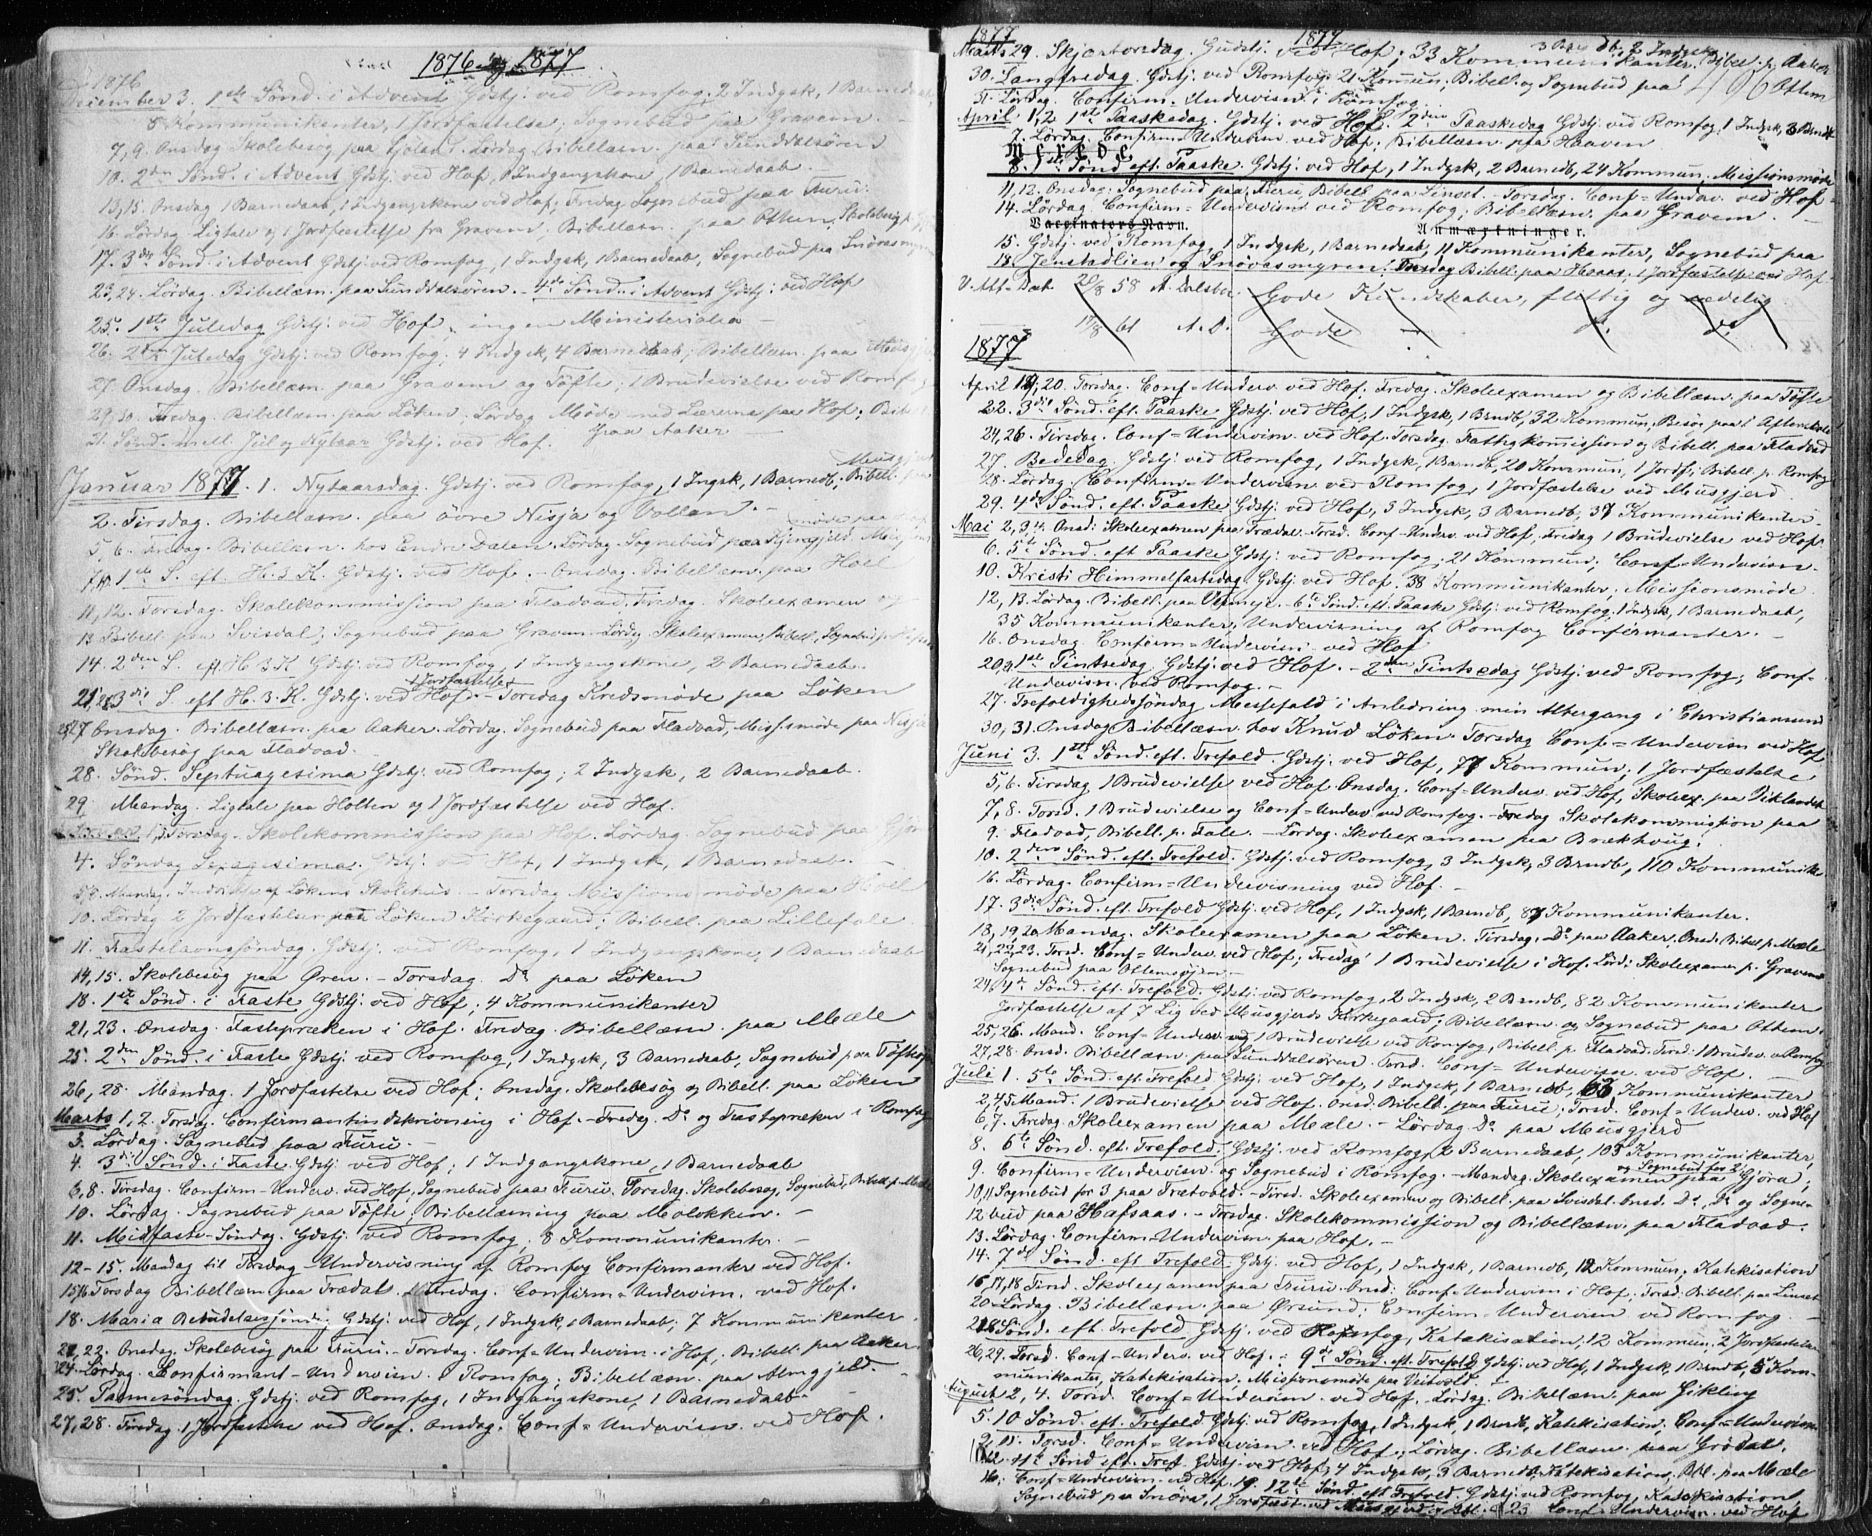 1876 og 1877
1876
December 3. 1ste Sönd. i Advent Gdstj. ved Romfog, 2 Indgsk, 1 Barnedaab,
8 Kommunikanter, 1 Jordfæstelse; Sognebud paa Gravem.
7, 9. Onsdag Skolebesög paa Fjölan. Lördag Bibellæsn. paa Sunddalsören
10. 2den Sönd. i Advent Gdstj. ved Hof, 1 Indgangskone, 1 Barnedaab.
13, 15. Onsdag 1 Barnedaab, 1 Indgangskone ved Hof; Fredag Sognebud paa Furu.
16. Lördag Ligtale og 1 Jordfæstelse fra Gravem; Bibellæsn. paa Ottem, Skolebesög p.
17. 3die Sönd. i Advent Gdstj. ved Romfog, 1 Indgsk, 1 Barnedaab, Sognebud paa Snövasmyren
23, 24. Lördag. Bibellæsn. paa Sunddalsören. - 4de Sönd. i Advent Gdstj. ved Hof
25. 1ste Juledag Gdstj. ved Hof, ingen Ministerialia -
26. 2den Juledag Gdstj. ved Romfog, 4 Indgsk, 4 Barnedaab; Bibellæsn. paa Musgjerd
27. Onsdag. Bibellæsn. paa Gravem og Töfte; 1 Brudevielse ved Romfog
29, 30. Fredag. Bibellæsn. paa Löken. Lördag Möde med Lærerne paa Hof; Bibell.
31. Sönd. mell. Jul og Nytaar Gdstj. ved Hof. paa Aaker -
Januar 1877. 1. Nytaarsdag. Gdstj. ved Romfog, 1 Ingsk, 1 Barnedb, Bibell. paa Musgjerd
2. Tirsdag. Bibellæsn. paa övre Nisja og Vollan. -
5, 6. Fredag. Bibellæsn. hos Endre Dalen. Lördag. Sognebud paa
7, 10. 1ste S. eft. H. 3 K. Gdstj. ved Hof. - Onsdag. Bibellæsn. paa Hoel
11, 12. Torsdag. Skolekommission paa Fladvad. Fredag. Skoleexamen og
13 Bibell. paa Svisdal; Sognebud paa Gravem. Lördag Skoleexamen, Bibell., Sognebud p.
14. 2den S. eft. H. 3 K. Gdstj. ved Romfog, 1 Indgangskone, 2 Barnedaab.
1 Jordfæstelse
21, 25. 3die S. eft H. 3. K. Gdstj. ved Hof. - Torsdag Kredsmöde paa Löken
27 Onsdag. Bibellæsn. paa Aaker. Lördag. Sognebud paa Fladvad, Miss:smöde paa Nisja
Skolebesög paa Fladvad.
28. Sönd. Septuagesima Gdstj. ved Romfog; 2 Indgsk, 2 Barnedaab.
29 Mandag. Ligtale paa Holten og 1 Jordfæstelse ved Hof.
Torsdag. Skolekommission paa Hof. Lördag. Sognebud paa
4. Söndag Sexagesima. Gdstj. ved Hof, 1 Indgsk, 1 Barnedaab. -
5, 8. Mandag, Indvielse af Lökens Skolehus. - Torsdag Missionsmöde paa Hoel
10. Lördag 2 Jordfæstelser paa Löken Kirkegaard; Bibell. paa Lillefale.
11. Fastelavnssöndag. Gdstj. ved Romfog, 1 Indgangskone, 1 Barnedaab
14, 15. Skolebesög paa Øren. - Torsdag. Do paa Löken
18. 1ste Sönd. i Faste Gdstj. ved Hof; 4 Kommunikanter
21, 23. Onsdag. Fastepræken i Hof. Fredag. Bibellæsn. paa Mæle
25. 2den Sönd. i Faste Gdstj. ved Romfog, 1 Indgsk, 3 Barnedaab, Sognebud paa
26, 28. Mandag. 1 Jordfæstelse ved Hof; Onsdag. Skolebesög og Bibell. paa Löken
Marts 1, 2. Torsdag. Confirmantindskrivning i Hof. - Fredag. Do og Fastepræken i Romfog
3. Lördag. Sognebud paa Furu. -
4. 3die Sönd. i Faste Gdstj. ved Hof; 1 Indgangskone, 1 Barnedaab
6, 8. Tirsdag. Confirm-Underv. ved Hof, Sognebud paa Furu. Torsdag. Skolebesög, Sognebud, Bibell. p. Mæle
10. Lördag. Sognebud paa Töfte, Bibellæsning paa Molökken. -
11. Midfaste-Söndag. Gdstj. ved Romfog, 8 Kommunikanter. -
12 - 15. Mandag til Torsdag Undervisning af Romfog Confirmanter ved Hof.
15, 16 Torsdag Bibellæsn paa Trædal. Fredag. Confirm-Undervisn. ved Hof.
18. Maria Bebudelsessöndag Gdstj. ved Hof, 1 Indgsk, 1 Barnedaab; 7 Kommunikanter.
21, 22. Onsdag. Skolebesög paa Furu. - Torsdag. Conf=Undervisn. i Hof, Bibell. paa Aaker.
24. Lördag. Confirmant-Undervisn. i Romfog; Bibellæsn. paa Almgjeld. -
25. Palmesöndag. Gdstj. ved Romfog, 1 Indgangskone, 1 Barnedaab -
27, 28. Tirsdag, 1 Jordfæstelse ved Hof. Onsdag. Conf=Undervisn. ved Hof.
1877 1877
Marts 29. Skjærtorsdag. Gudstj. ved Hof; 33 Kommunikanter, Bibel. p. Aaker
30. Langfredag. Gdstj. ved Romfog 21 Kommun., Bibell. og Sognebud paa Ottem
31. Lördag. Confirm=Undervisn. i Romfog
April 1, 2 1ste Paaskedag. Gdstj. ved Hof. 2den Paaskedag Gdstj. ved Romfog, 1 Indgsk, 3 Barnedb
7. Lördag. Confirm=Undervisn. ved Hof; Bibellæsn. paa Haaven
8. 1ste Sönd. eft. Paaske Gdstj. ved Hof, 1 Indgsk, 2 Barnedb, 24 Kommun. Missionsmöde
11, 12. Onsdag. Sognebud paa Furu, Bibell. paa Linset. - Torsdag. Conf=Underv. ved Hof.
14. Lördag. Confirm=Undervisn. ved Romfog; Bibellæsn. paa Gravem.
Vaccinators Navn. Anmærkninger.
15. Gdstj. ved Romfog, 1 Indgsk, 1 Barnedaab, 11 Kommunikanter, Sognebud paa
18. Jenstadlien og Snövasmyren. Bibell. paa Hoaas, 1 Jordfæstelse ved Hof.
V. Att=Dat 20/8 58 A. Dalsbo. Gode Kundskaber, flittig og sædelig
17/8 61 A. D. Gode - do do
1877
April 19, 20. Torsdag. Conf=Underv. ved Hof. Fredag. Skoleexamen og Bibellæsn. paa Töfte
22. 3die Sönd. eft. Paaske Gdstj. ved Hof, 1 Indgsk, 1 Brndb, 32 Kommun, Besög paa 1 Aftenskole
24, 26. Tirsdag. Conf=Undervisn. ved Hof. Torsdag. Fattigkommission og Bibell. paa Fladvad
27. Bededag. Gdstj. ved Romfog, 1 Indgsk, 1 Barndb, 20 Kommun, 1 Jordf; Bibell. p. Romfog
28. Lördag. Confirm=Undervisn. ved Romfog, 1 Jordfæstelse ved Musgjerd
29. 4de Sönd. eft. Paaske Gdstj. ved Hof, 5 Indgsk, 3 Barnedb, 37 Kommunikanter.
Mai 2, 3, 4. Onsd: Skoleexamen paa Trædal. Torsd. Conf-Underv. ved Hof, Fredag 1 Brudevielse ved Hof.
6. 5te Sönd. eft Paaske Gdstj. ved Romfog, 21 Kommun; Conf=Undervisn.
10. Kristi Himmelfartsdag Gdstj: ved Hof. 38 Kommunikanter; Missionsmöde
12, 13. Lördag. Bibell. paa Vermeje. 6te Sönd. eft. Paaske Gdstj: ved Romfog, 1 Indgsk, 1 Barnedaab,
35 Kommunikanter, Undervisning af Romfog Confirmanter. -
16. Onsdag. Confirm=Undervisn. ved Hof
20, 21 1ste Pintsedag Gdstj. ved Hof. - 2den Pintsedag Gdstj. ved Romfog; Conf=
Undervisn. ved Romfog. -
27. Trefoldighedssöndag Messefald i Anledning min Altergang i Christiansund
30, 31. Onsdag Bibellæsn. hos Knud Löken. Torsdag Conf=Undervisn ved Hof
Juni 3. 1ste Sönd. eft. Trefold. Gdstj. ved Hof, 77 Kommun. 1 Jordfæstelse
5, 6. Tirsdag. 1 Brudevielse ved Hof. Onsdag. Conf=Underv. ved Hof, Skoleex. paa Viklandet
7, 8. Torsd. 1 Brudevielse og Conf=Underv. ved Romfog. - Fredag Skolekommission paa
9. Fladvad, Bibell. p. Fale. - Lördag. Skoleexamen paa Brækhaug.
10. 2den Sönd. eft. Trefold. Gdstj. ved Romfog, 3 Indgsk, 3 Brndb, 110 Kommunik.
16. Lördag. Confirm=Undervisning ved Hof. -
17. 3die Sönd. eft. Trefold Gdstj. ved Hof, 1 Indgsk, 1 Barndb, 87 Kommunikanter.
18, 19, 20 Mandag. Skoleexamen paa Löken. Tirsdag. Do paa Aaker. Onsd. Bibell p. Mæle
21, 22, 23. Torsd. Conf=Underv. ved Hof; Fredag 1 Brudevielse i Hof. Lörd: Skoleexamen p. Gravem
Sognebud paa Ottemsöyen -
24. 4de Sönd. eft. Trefold. Gdstj. ved Romfog, 2 Indgsk, 2 Brndb, 82 Kommunikanter
Jordfæstelse af 7 Lig ved Musgjerds Kirkegaard; Bibellæsn. og Sognebud paa Ottem.
25, 26 Mand. Conf-Underv. og 1 Brudevielse ved Romfog, Bibell. p. Fladvad. Tirsd. 1 Brudev. v. Romfog
27, 28. Onsd. Bibellæsn. paa Sunddalsören. Torsd. Conf=Undervisn. ved Hof.
Juli 1. 5te Sönd. eft. Trefold Gdstj. ved Hof, 1 Indgsk, 1 Barnedb, 63 Kommunikanter
2, 4, 5 Mand. 1 Brudevielse ved Hof. Onsd. Bibell. paa Furu. Torsd. Conf=Underv. ved Hof
6, 7. Fredag. Skoleexamen paa Mæle. - Lördag. Do paa Musgjerd
8. 6te Sönd. eft. Trefold. Gdstj. ved Romfog, 2 Barnedaab, 103 Kommunikanter,
og Sognebud for 2,
9. Confirm=Undervisn og Sognebud i Romfog. - Mandag. Skoleexamen paa Gjöra;
10, 11 Sognebud for 3 paa Trætvold. - Tirsd. Skoleexamen og Bibell. paa Svisdal. Onsd. Do, Do og Sogne-
12 bud paa Hafsaas. - Torsdag. Skolekommission og Bibellæsn. paa Fladvad.
13. Lördag. Confirm=Undervisn. paa Hof. -
14. 7de Sönd. eft Trefold. Gdstj. ved Hof, 1 Indgsk, 1 Barnedb, 12 Kommun, Katekisation
16, 17, 18 Tirsd. Skoleexamen paa Furu. Onsd: Conf-Undervisn i Hof. Torsd. Bibell. paa Linset
20 Lördag. Bibellæsn. paa Øxend; Confirm-Undervisn ved Romfog
Sönd. eft. Trefold Gdstj. ved Romfog, Katekisation, 12 Kommun. 2 Jordfæstelser
26, 29. Torsd. Conf-Underv. ved Hof. 9de Sönd. eft. Trefold Gdstj. ved Hof, 1 Indgsk, 1 Brndb, 5 Kom-
munikanter, Katekisation. Missionsmöde paa Vestvold.
August 2, 4. Torsd. Conf=Undervisn. ved Hof. Lördag. Bibellæsn. paa Gikling
5. 10 Sönd. eft. Trefold Gdstj. ved Romfog, 1 Indgsk, 1 Brndb, Katekisation, Conf=Undervisn.
9, 11. Torsd. Conf=Undervisn. ved Hof; Lördag. Bibellæsn. paa Grödal.
12 11te Sönd eft. Tref. Gdstj. ved Hof, 4 Indgsk, 3 Barnedb, Katekisation, Bibl. paa Mæle
16. Conf=Undervisn. ved Hof. 19. 12te Sönd. eft Trefold. Gdstj. ved Romfog, Katekisation
Sognebud paa Snöva, 1 Jordfæst. ved Musgjerd og Bibl. 23 Conf=Undervisn. ved Hof